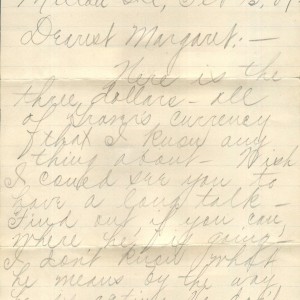 Dearest Margaret:—
Here is the
three dollars — all
of currency
that I know any
thing about — Wish
I could see you to
have a long talk —
Find out if you can
where he is going —
I don't know what
he means by the way